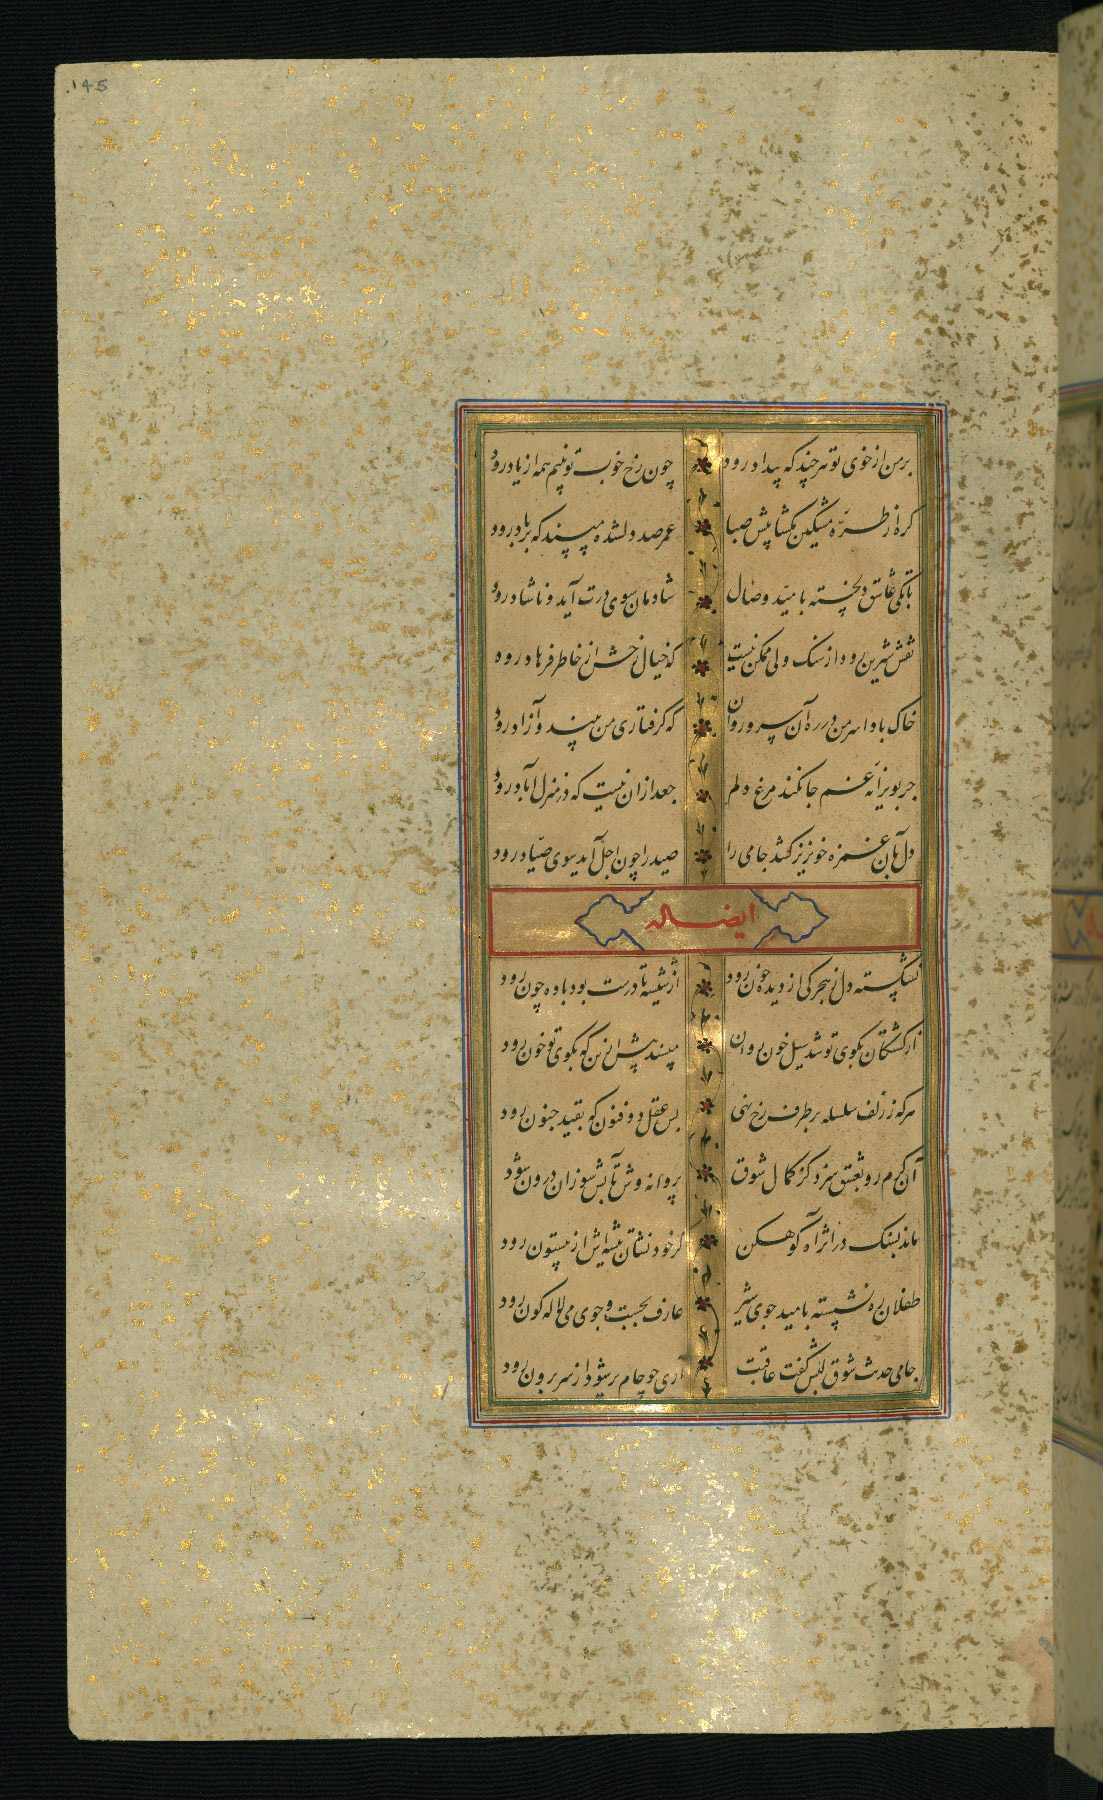 145
بر من از خوی تو هر چند که بیداد رود چون رخ خوب تو بینم همه از یاد رود
گره از طرّه مشکین مگشا پیش صبا عمر صد دلشده مپسند که بر باد رود
تا بکی عاشق دلخسته بامید وصال شادمان سوی درت آید و ناشاد رود
نقش شیرین رود از سنک ولی ممکن نیست که خیال رخش از خاطر فرهاد رود
خاک بادا سر من در ره آن سرو روان که گرفتاری من بیند و آزاد رود
جز بویرانه غم جا نکند مرغ دلم جغد ازان نیست که در منزل آباد رود
دل بآن غمزه خونریز کشد جامی را صید را چون اجل آید سوی صیّاد رود
ایضا له
نشکسته دل ز هجر کی از دیده خون رود از شیشه تا درست بود باده چون رود
از کشتکان بکوی تو شد سیل خون روان مپسند بیش ازین که بکوی تو خون رود
هر که ز زلف سلسله بر طرف رخ نهی بس عقل ذو فنون که بقید جنون رود
آن گرم رو بعشق سزد کز کمال شوق پروانه وش بآتش سوزان درون شود
ماند بسنک در اثر آه کوهکن کر خود نشان تیشه‌اش از بیستون رود
طفلان ره نشسته بامید جوی شیر عارف بجست و جوی می لاله کون رود
جامی حدیث شوق لبش گفت عاقبت آری چو جام پر شود از سر برون رود